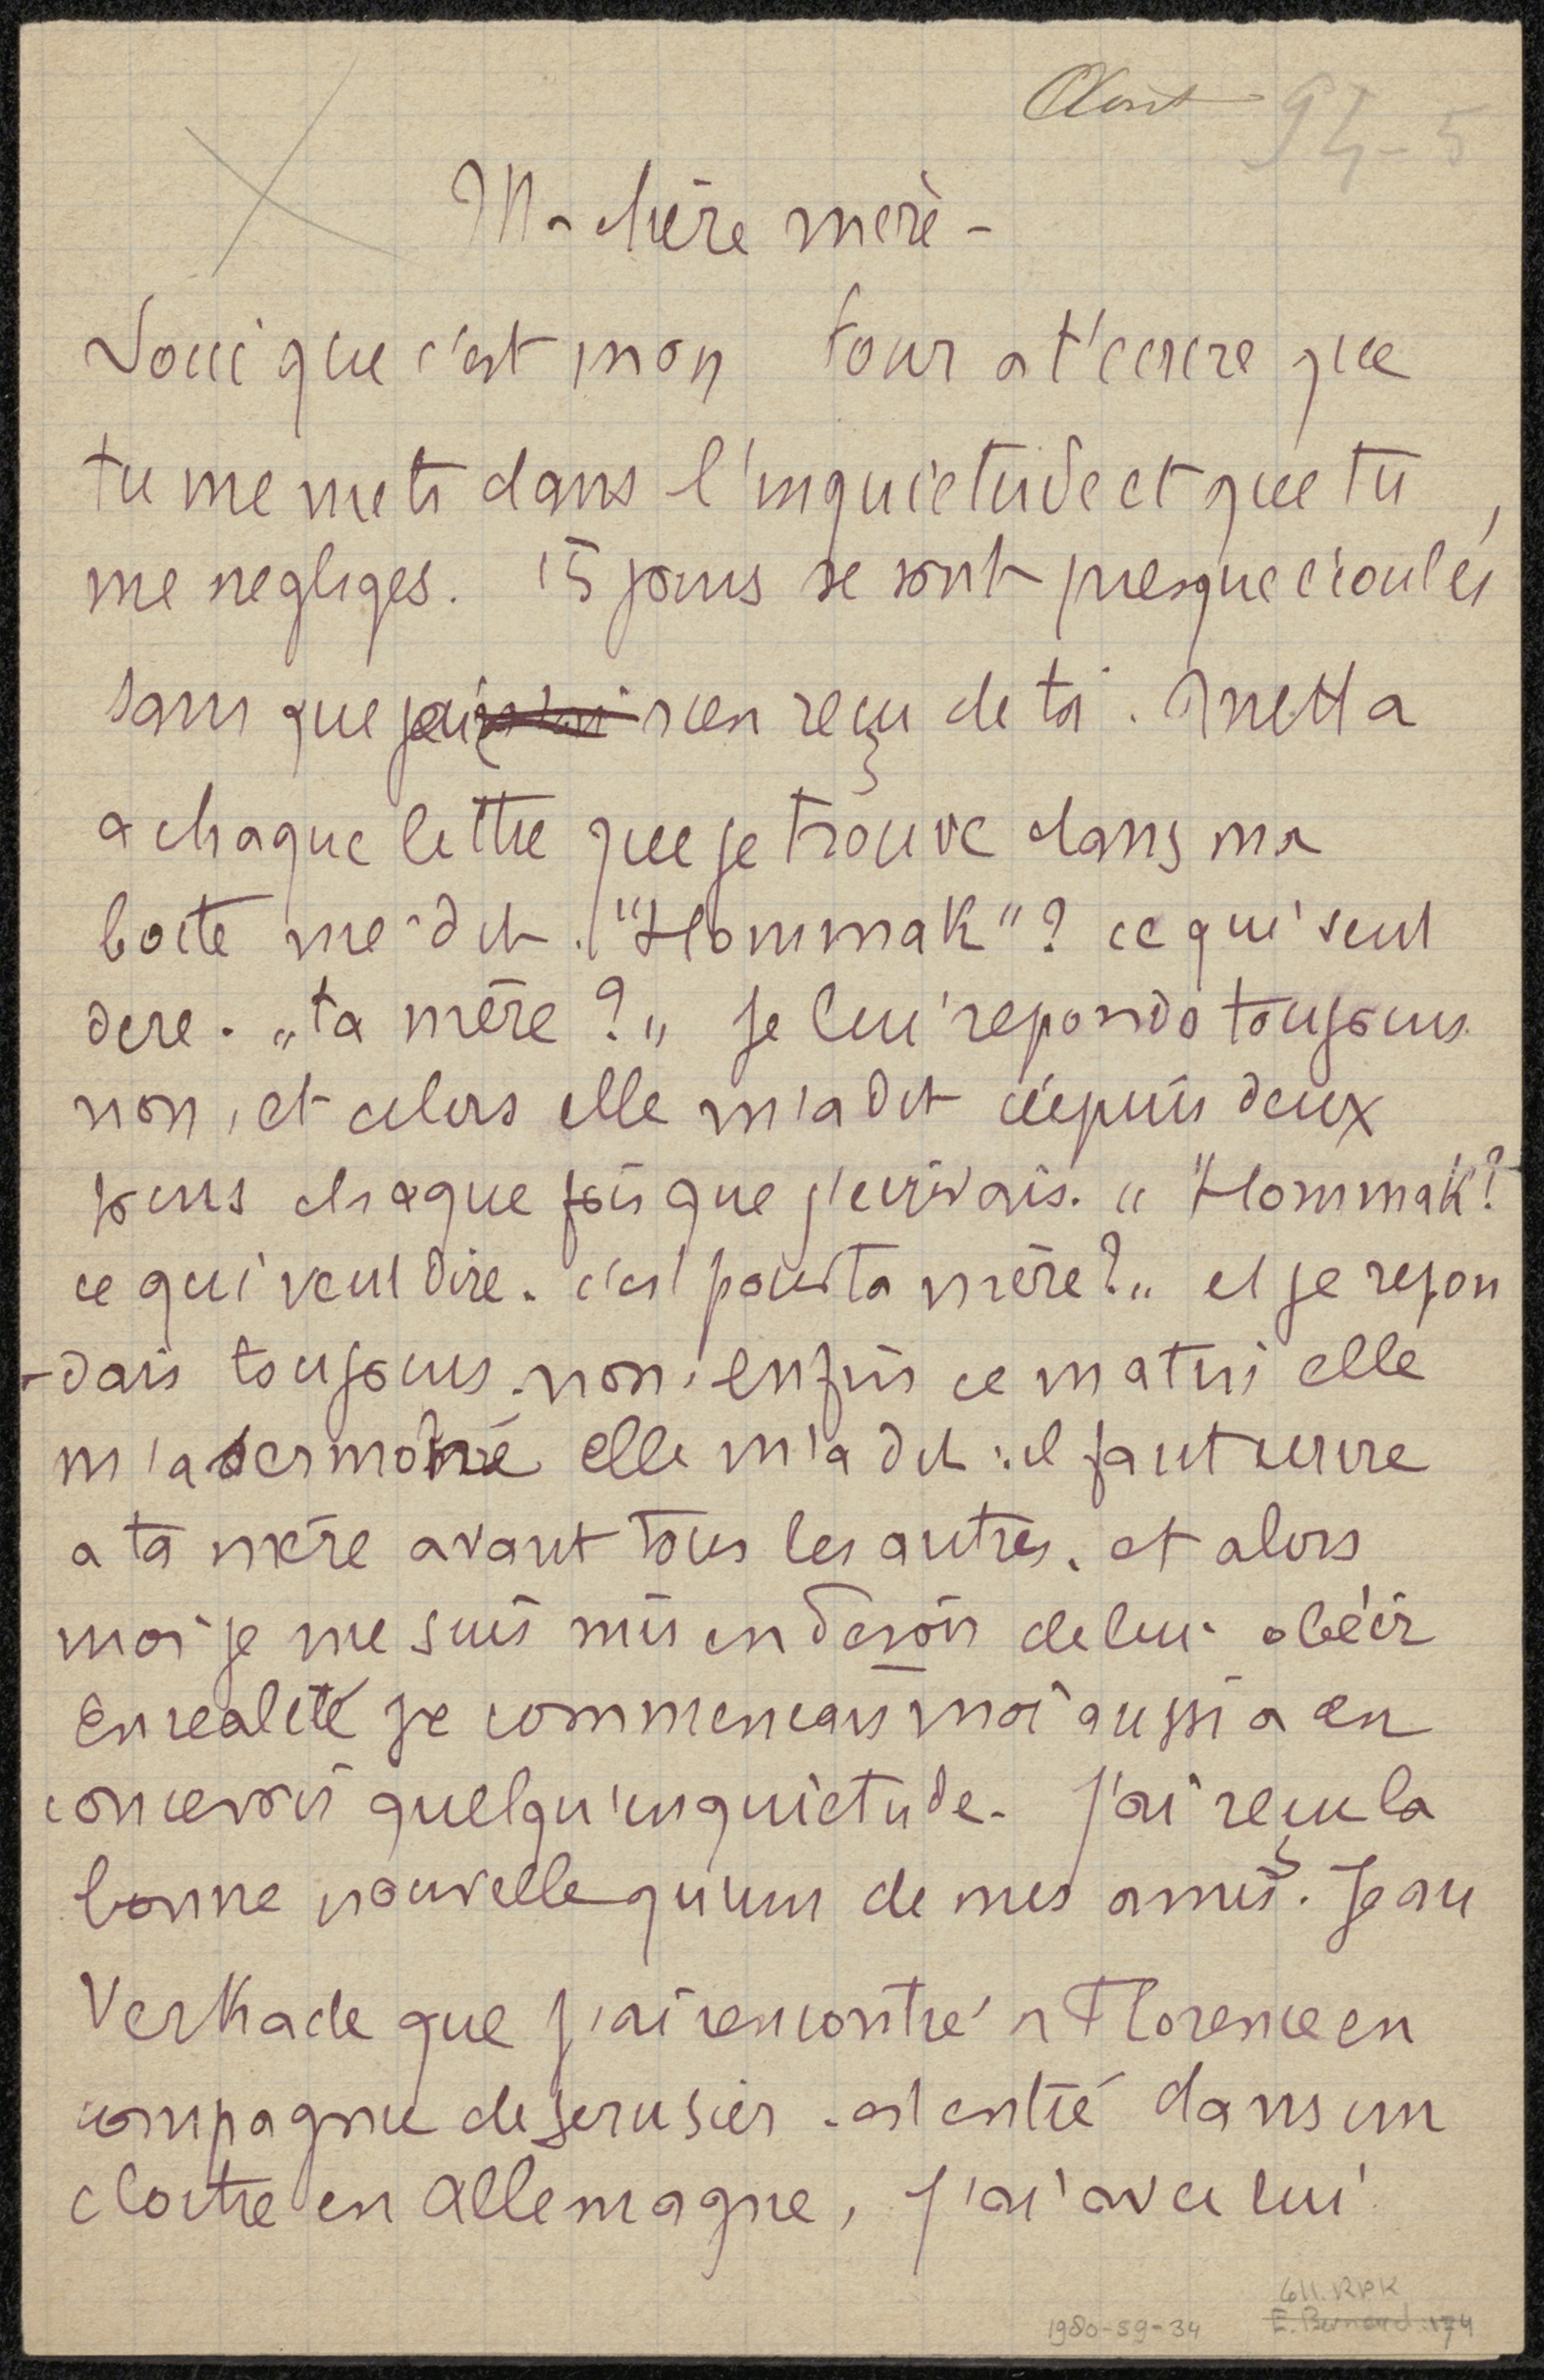 Aout 94-5
Ma chère merè -
Voici que c'est mon tour a t'ecrire que
tu me mets dans l'inquietude et que tu
me negliges. 15 jours se sont presque écoulés,
sans que j'ai rien reçu de toi.
a chaque lettre que je trouve dans ma
boite me dit. "Hommak"? ce qui veut
dire. „ta mère?„ je lui reponds toujours
non, et alors elle m'a dit depuis deux
jours chaque fois que j'ecrivais. „ "Hommak"?
ce qui veut dire. c'est pour ta mère?„ et je repon
-dais toujours. non. enfin ce matin elle
m'a sermonné elle m'a dit : il faut ecrire
a ta mère avant tous les autres. et alors
moi je me suis mis en devoir de lui obéir
En realité je commencais moi aussi a en
concevoir quelqu'inquietude. J'ai reçu la
bonne nouvelle qu'un de mes amis. Jean
Verkade que j'ai rencontré a Florence en
compagnie de Serusier. est entré dans un
cloitre en Allemagne, j'ai avec lui
611. RPK
1980-59-34 E. Bernard 174